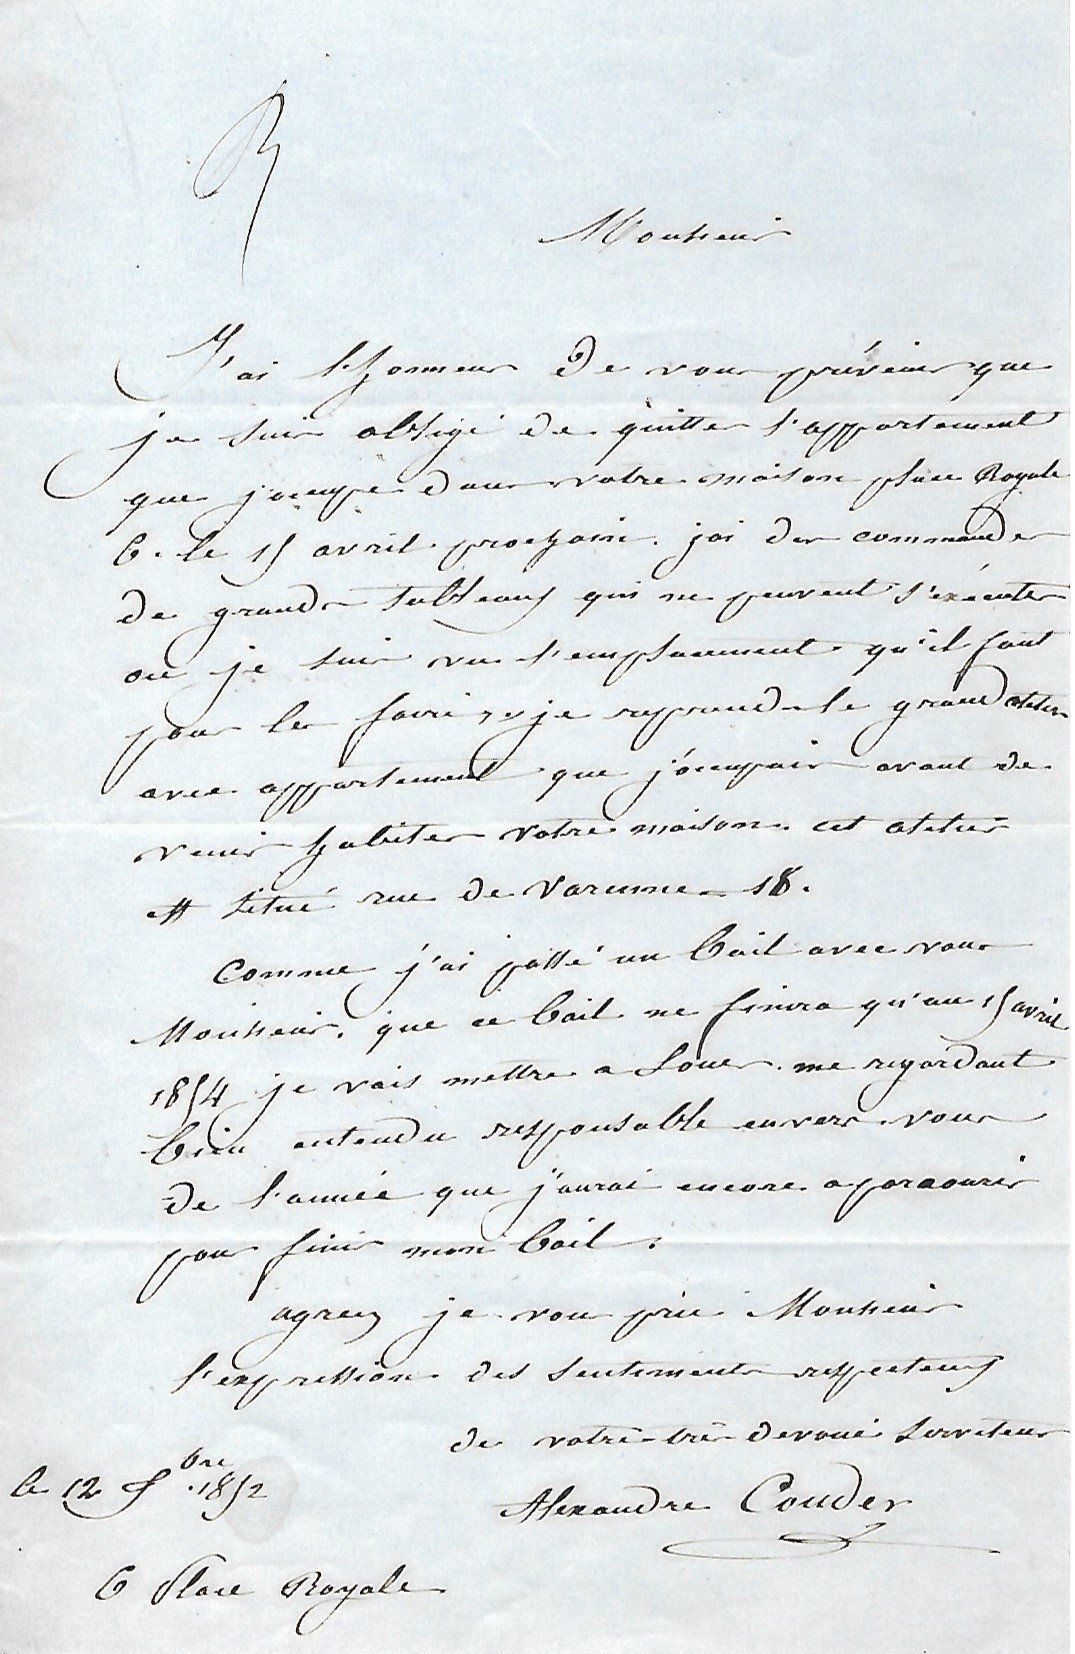 R
Monsieur
J'ai l'honneur de vous prévenir que
je suis obligé de quitter l'appartement
que j'occupe dans votre maison place Royale
6. le 15 avril prochain. jai des commandes
de grands tableaux qui ne peuvent s'exécuter
ou je suis vu l'emplacement qu'il faut
pour les faire, je reprends le grand atelier
avec appartement que j'occupais avant de
venir habiter votre maison. cet atelier
est situé rue de Varenne 18.
Comme j'ai passé un bail avec vous
Monsieur, que ce bail ne finira qu'au 15 avril
1854 je vais mettre a louer. me regardant
bien entendu responsable envers vous
de l'année que j'aurai encore a parcourir
pour finir mon bail.
agreez je vous prie Monsieur
l'expression des sentiments respectueux
de votre très devoué serviteur
Alexandre Couder
le 12 bre 1852
6 Place Royale